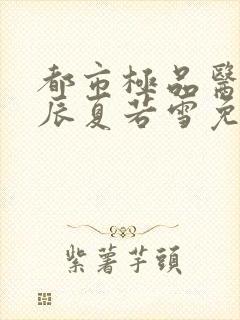 都市極品醫
辰夏若雪免
紫薯芋頭